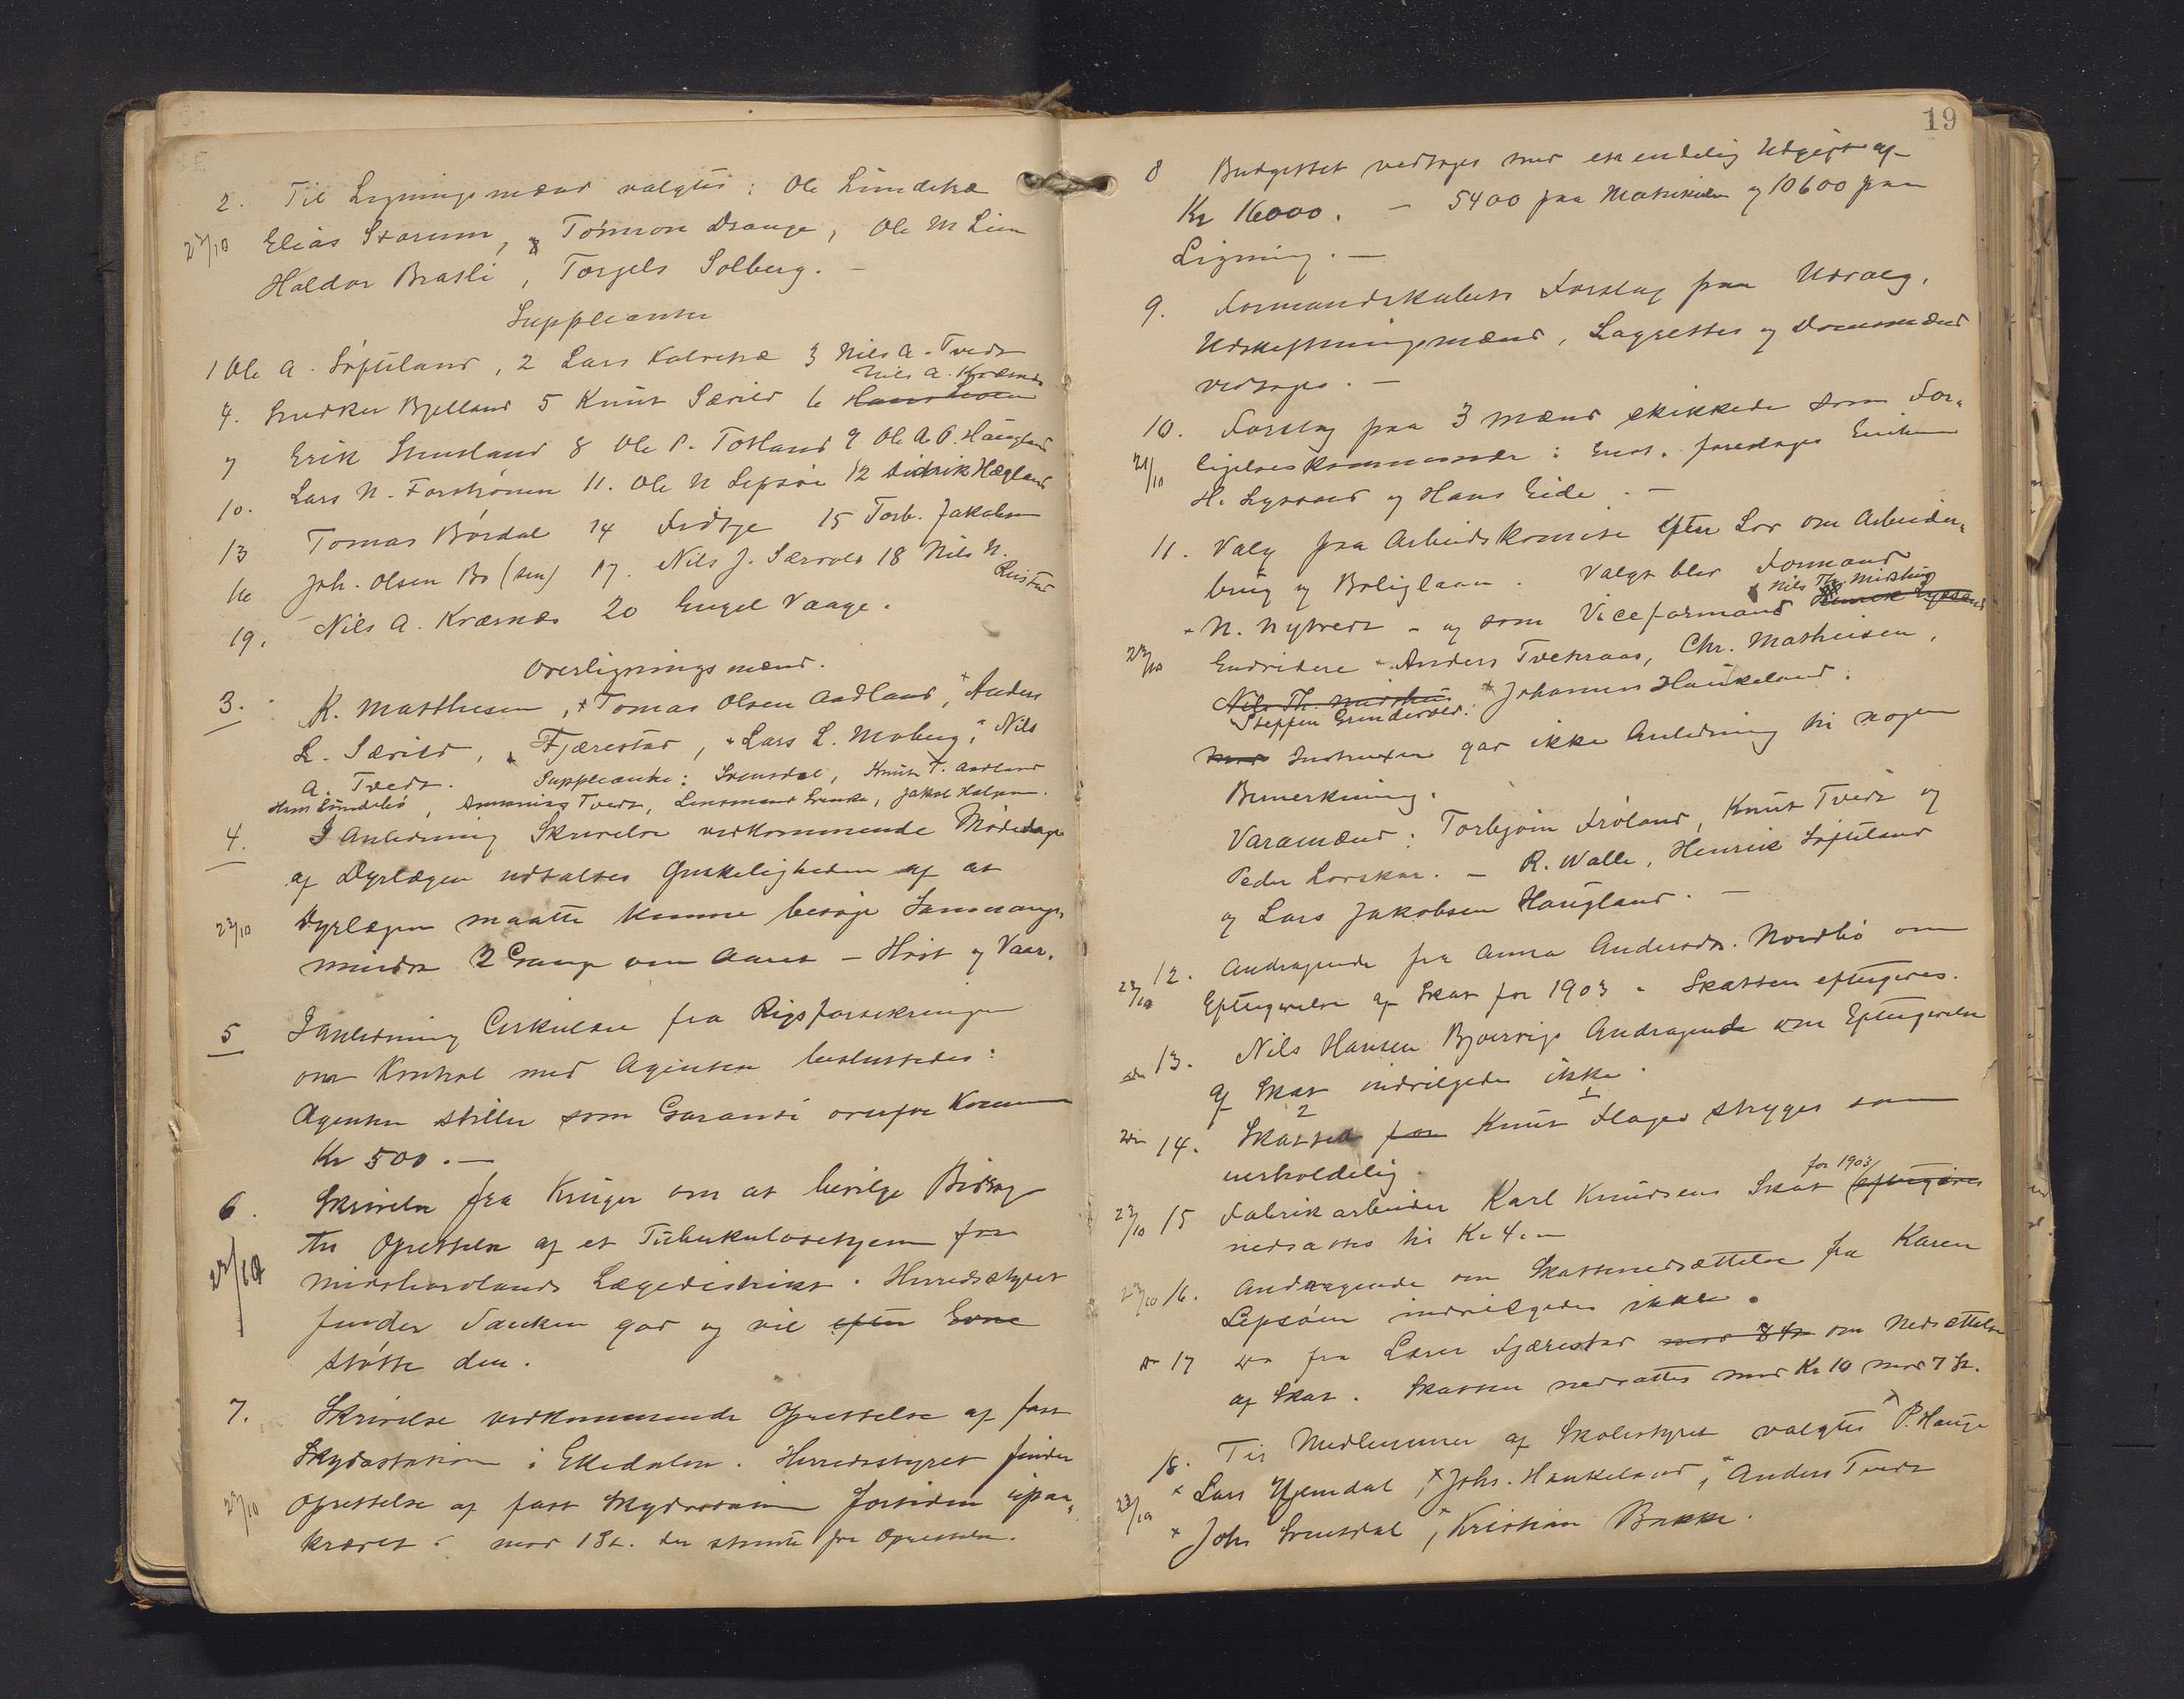 2. Til Ligningsmænd valgtes: Ole Lundetræ
23/10 Elias Storum, Tømron Drange, Ole M Lien
Haldor Bratli, Torgels Solberg. -
Suppleanter
1 Ole A. Søfteland, 2 Lars Kalvetræ 3 Nils A. Tveit
Nils A. Kværnes
4. Sjudker Bjelland 5 Knut Særild 6 Hans
7 Erik Strutland 8 Ole P. Totland 9 Ole A. O. Haugland
10. Lars N. Forstrønen 11. Ole N Lepsøe 12 Didrik Hægland
13 Tomas Børdal 14 Frotje 15 Torb. Jakobsen
16 Joh. Olsen Bø (sen) 17. Nils J. Særvold 18 Nils N.
Røistad
19. Nils A. Kværnes 20 Engel Vaage.
Overligningsmænd.
3. K. Matthesen, + Tomas Olsen Aadland, + Anders
L. Særild, Fjærestad, + Lars L. Moberg, + Nils
A. Tveit. Suppleanter: Svensdal, Knut T. Aadland
Hans Lundebø, Ammonius Tveit, Lensmand Grenke, Jakob Halgem.
4. I Anledning Skrivelse vedkommende Mødedage
af Dyrlægen udtaltes Ønskeligheden af at
23/10 Dyrlægen maatte kunne besøge Samnanger
mindst 2 Gange om Aaret - Høst og Vaar.
5 I Anledning Cirkulære fra Rigsforsikringen
om Kontrol med Agenten besluttedes:
Agenten stiller som Garanti overfor Kommunen
Kr 500. -
6. Skrivelse fra Krüger om at bevilge Bidrag
23/10 til Oprettelse af et Tuberkulosehjem for
Midthordlands Lægedistrikt. Herredsstyret
finder Tanken god og vil efter Evne
støtte den.
7. Skrivelse vedkommende Oprettelse af fast
Skydsstation i Ekedalen. Herredsstyret finder
23/10 Oprettelse af fast Skydsstation forsiden upaa-
krævet. mod 1 St. der stemte for Oprettelse.
19
8 Budgettet vedtages med en endelig Udgift af
Kr 16000. - 5400 paa Matrikulen og 10600 paa
Ligning. -
9. Formandskabets Forslag paa Udvalg.
Udskiftningsmænd, Lagrettes og Domsmænd
vedtages. -
10. Forslag paa 3 Mænd skikkede som For-
21/10 ligelseskommissær: Enst. foreslages
H. Lyssand og Hans Eide. -
11. Valg paa Arbeidskomite efter Lov om Arbeider-
brug og Boliglaan. Valgt blev Formand
+ N. Nytveit - og som Viceformand Nils Th. Midthus Henrik Lyssand
23/10 Endvidere + Anders Tveteraas, Chr. Mathiesen,
Nils Th. Midthus + Johannes Haukeland.
Steffen Grindevold.
Instruxen gav ikke Anledning til nogen
Bemerkning.
Varamænd: Torbjørn Frøland, Knut Tveit og
Peder Lorskar. - R. Walle, Henrik Søfteland
og Lars Jakobsen Haugland. -
23/10 12. Andragende fra Anna Andersdr. Nordbø om
Eftergivelse af Skat for 1903 - Skatten eftergives.
do 13. Nils Hansen Bjørvigs Andragende om Eftergivelse
af Skat indvilgedes ikke.
2 1
14. Skatten for Knut Flaged stryges som
uerholdelig
for 1903
23/10 15 Fabrikarbeider Karl Knudsens Skat eftergives
nedsattes til Kr 4.-
23/10 16. Andragende om Skattenedsættelse fra Karen
Lepsøen indvilgedes ikke.
do 17 do fra Lærer Fjærestad om Nedsættelse
af Skat. Skatten nedsattes med Kr 10 mod 7 St.
18. Til Medlemmer af Skolestyret valgtes + P. Hauge
23/10 + Lars Hjemdal, + Johs. Haukeland, + Anders Tveit
+ Johs Svensdal, + Kristian Bakke.